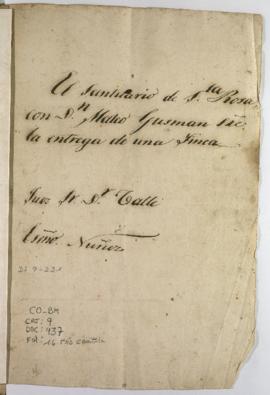 El santuario de S.ta Rosa
con D.n Mateo Gusman s̃re
la entrega de una Finca
Juez Sr. Dr. Calle
Esño. Nuñez
CO-BM
CAJ: 9
DOC: 437
Fol: 16 más carátula